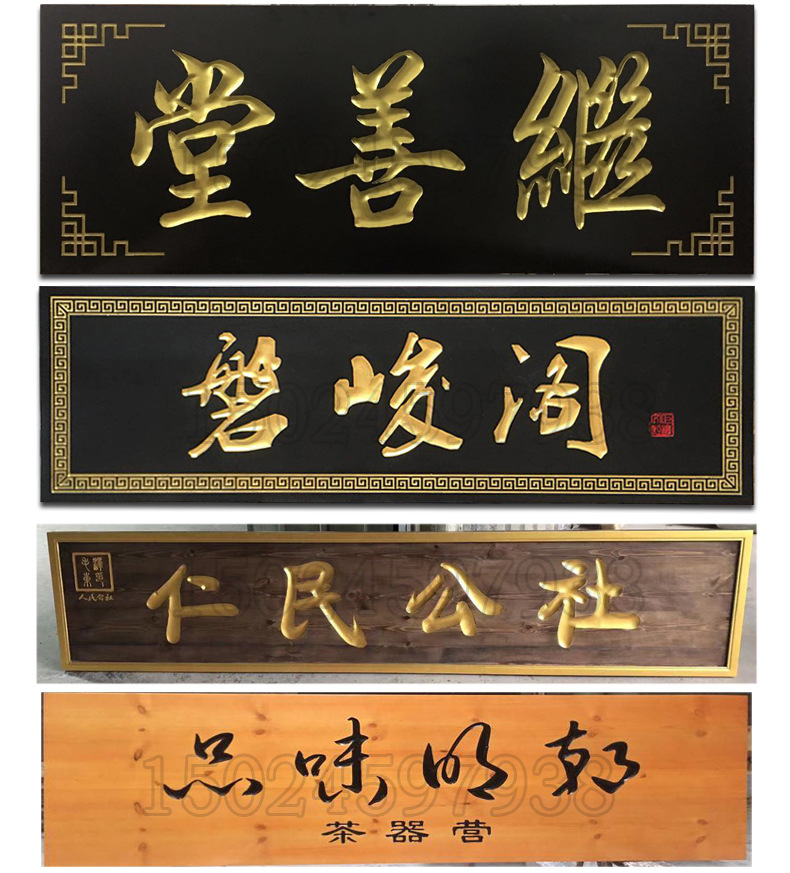 繼善堂
磐峻阁
人民公社
仁民公社
品味明朝
茶器营
15024597938